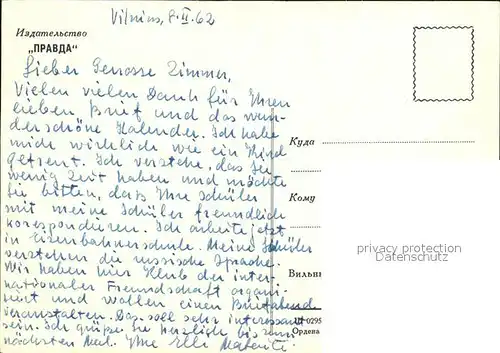 Vilnius, 8.II.62
Издательство
„ПРАВДА“
Lieber Genosse Zimmer,
Vielen vielen Dank für Ihren
lieben Brief und das wun-
derschöne Kalender. Ich habe
mich wirklich wie ein Kind
gefreut. Ich verstehe, das Sie
wenig Zeit haben und möchte
Sie bitten, dass Ihre Schüler
mit meine Schüler freundlich
korespondieren. Ich arbeite jetzt
in Eisenbahnerschule. Meine Schüler
verstehen die russische Sprache.
Wir haben hier Klub der inter-
nationaler Freundschaft organi-
siert und wollen einen Briefabend
veranstalten. Das soll sehr interessant
sein. Ich grüße Sie herzlich bis zum
nächsten Mal. Ihre Elli
Куда
Кому
privacy protection
OLDTHING.DE
Вильн
0295
Ордена